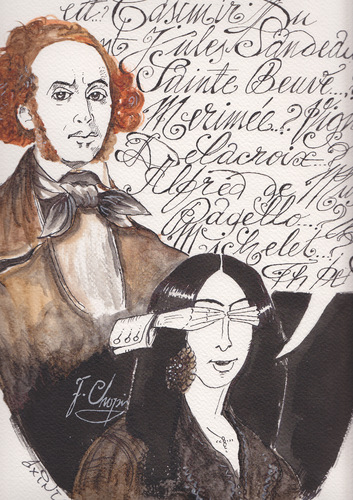 Casimir Du
Jules Sandeau
Sainte Beuve...
Merimée...?
Delacroix...
Alfred de Mu
Pagello...
Michelet...
F. Chopin